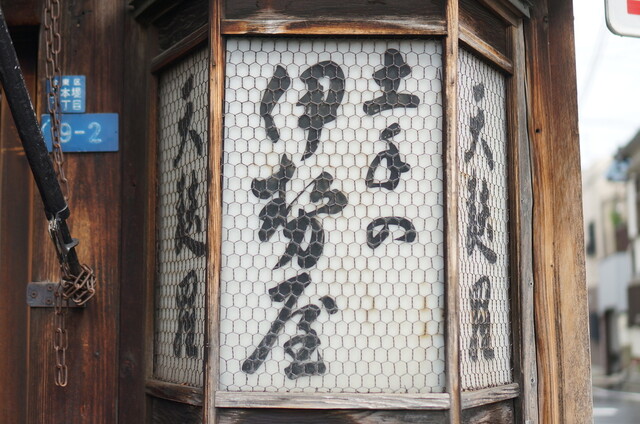 天麩羅
土手の
伊勢屋
天麩羅
東区
本堤
丁目
9-2